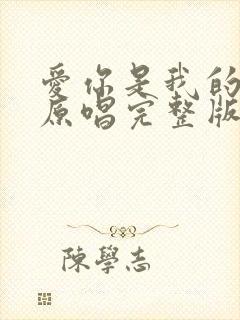 愛你是我的
原唱完整版
陳學志